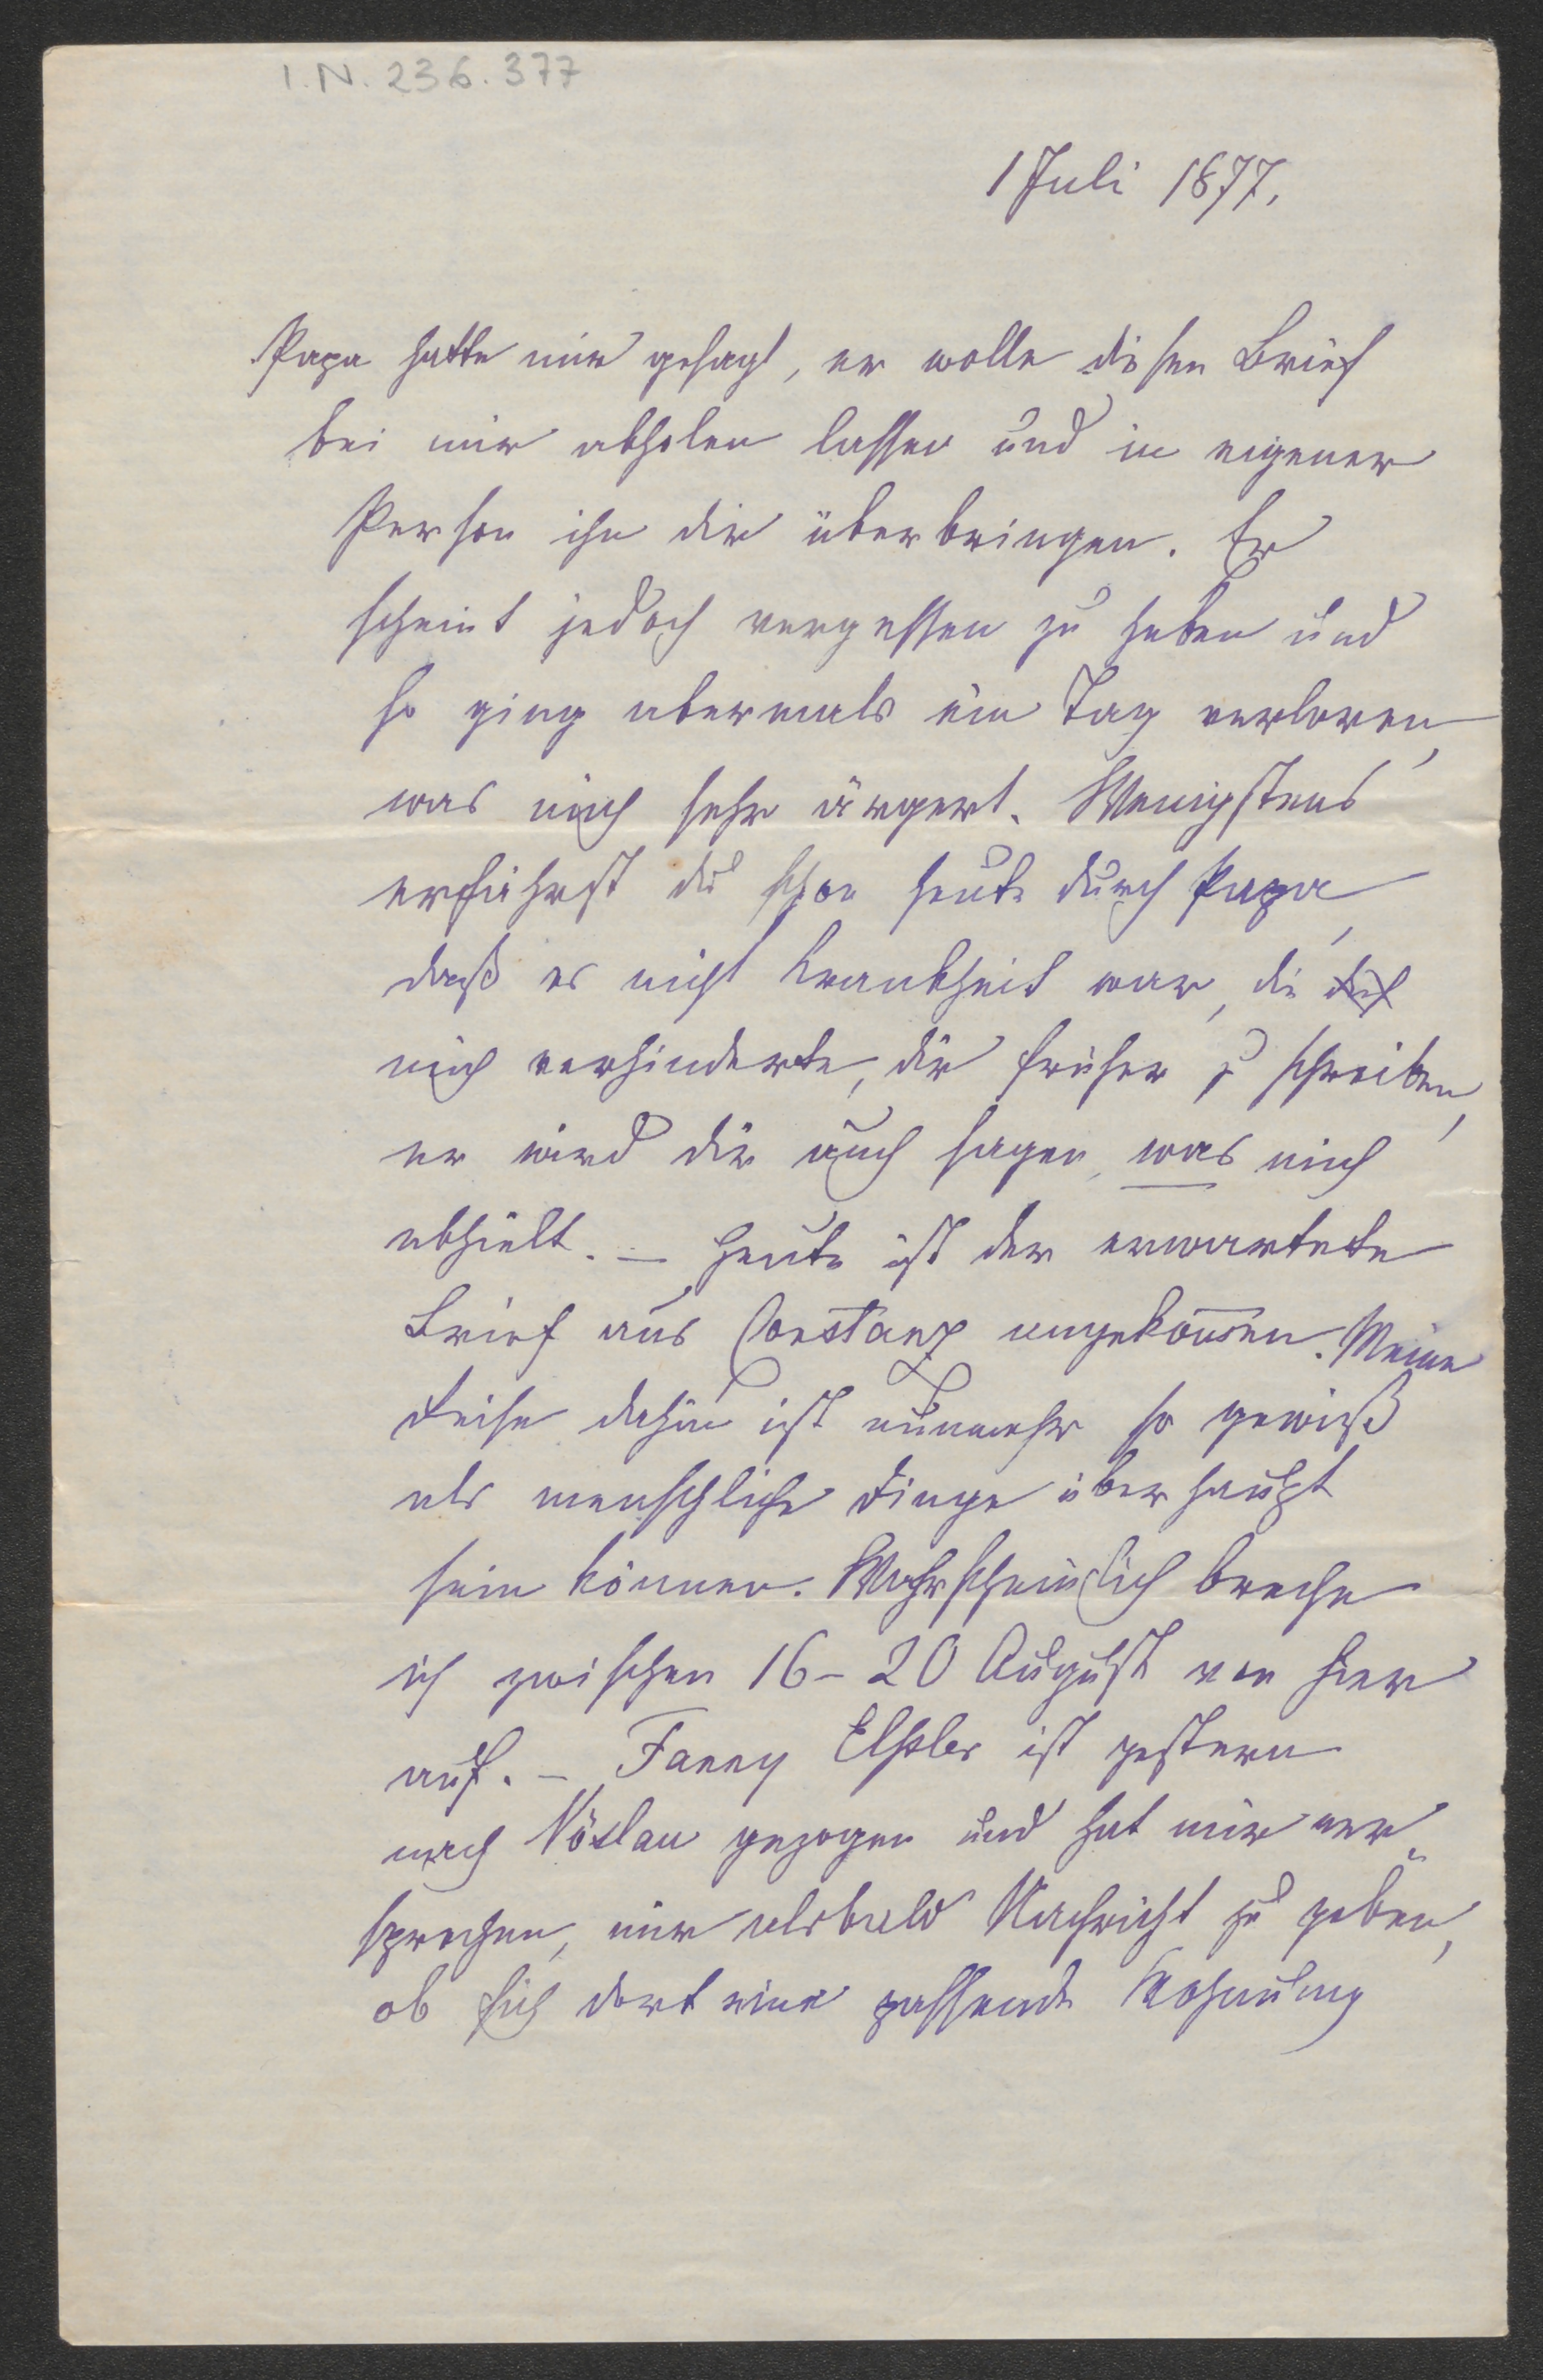 I.N. 236.377
1 Juli 1877.
Papa hatte mir gesagt, er wolle diesen Brief
bei mir abholen lassen und in eigener
Person ihn dir überbringen. Er
scheint jedoch vergessen zu haben und
so ging abermals ein Tag verloren,
was mich sehr ärgert. Wenigstens
erfährst du schon heute durch Papa,
daß es nicht Krankheit war, die
mich verhinderte, dir früher zu schreiben,
er wird dir auch sagen, was mich
abhielt. – Heute ist der erwartete
Brief aus Constanz angekom̄en. Meine
Reise dahin ist nunmehr so gewiß
als menschliche Dinge überhaupt
sein können. Wahrscheinlich breche
ich zwischen 16–20 August von hier
auf. – Fanny Elßler ist gestern
nach Vöslau gezogen und hat mir ver„
sprochen, mir alsbald Nachricht zu geben,
ob sich dort eine passende Wohnung